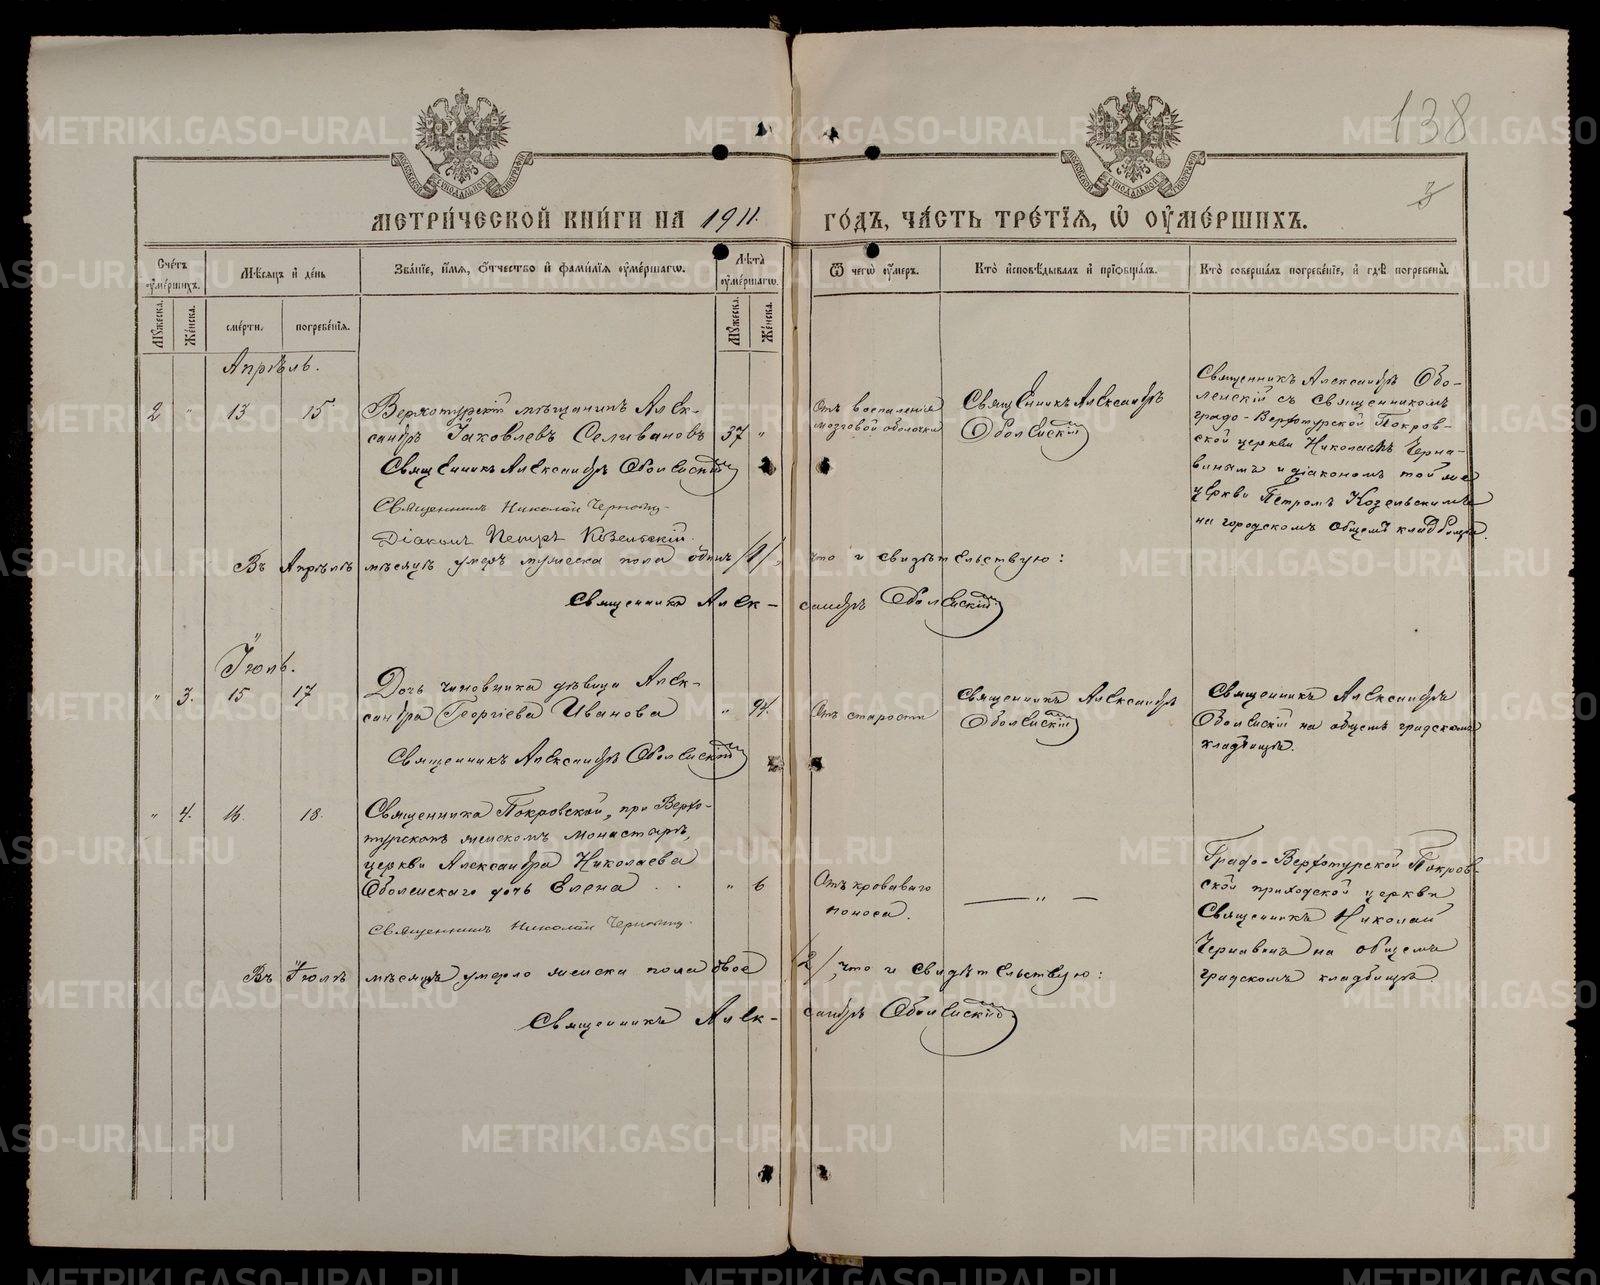 138
3
МОСКОВСКОЙ СѴНОДАЛЬНОЙ ТИПОГРАФІИ
МОСКОВСКОЙ СѴНОДАЛЬНОЙ ТИПОГРАФІИ
МЕТРИ́ЧЕСКОЙ КНИ́ГИ НА 1911. ГО́ДЪ, ЧА́СТЬ ТРЕ́ТЇѦ, Ѡ҆ ОУ҆МЕ́РШИХЪ.
Сче́тъ оу҆ме́ршихъ.
Мѣ́сяцъ и҆ де́нь
Зва́нїе, и҆́мя, ѻ҆́тчество и҆ фами́лїя оу҆ме́ршагѡ.
Лѣ́та оу҆ме́ршагѡ.
Ѿ чегѡ̀ оу҆́меръ.
Кто̀ и҆сповѣ́дывалъ и҆ прїѡбща́лъ.
Кто̀ соверша́лъ погребе́нїе, и҆ гдѣ̀ погребены̀.
Мꙋ́жеска.
Же́нска.
сме́рти.
погребе́нїя.
Мꙋ́жеска.
Же́нска.
Апрѣль.
2 " 13 15
Верхотурскій мѣщанинъ Алек-
сандръ Іаковлевъ Селивановъ 37 "
Священникъ Александръ Оболенскій
Священникъ Николай Чернавинъ
Діаконъ Петръ Козельскій.
Отъ воспаленія
мозговой оболочки
Священникъ Александръ
Оболенскій
Священникъ Александръ Обо-
ленскій съ священникомъ
градо-Верхотурской Покров-
ской церкви Николаемъ Черна-
винымъ и діакономъ той же
церкви Петромъ Козельскимъ
на городскомъ общемъ кладбищѣ.
Въ Апрѣлѣ мѣсяцѣ умеръ мужеска пола одинъ /1/, что и свидѣтельствую:
Священникъ Александръ Оболенскій
Іюль.
" 3. 15 17
Дочь чиновника дѣвица Алек-
сандра Георгіева Иванова " 94.
Священникъ Александръ Оболенскій
Отъ старости
Священникъ Александръ
Оболенскій
Священникъ Александръ
Оболенскій на общемъ градскомъ
кладбищѣ.
" 4. 16. 18.
Священника Покровской, при Верхо-
турскомъ женскомъ монастырѣ,
церкви Александра Николаева
Оболенскаго дочь Елена . . " 6
Священникъ Николай Чернавинъ
Отъ кроваваго
поноса.
— " —
Градо-Верхотурской Покров-
ской приходской церкви
Священникъ Николай
Чернавинъ на общемъ
градскомъ кладбищѣ.
Въ Іюлѣ мѣсяцѣ умерло женска пола двое /2/, что и свидѣтельствую:
Священникъ Александръ Оболенскій
METRIKI.GASO-URAL.RU